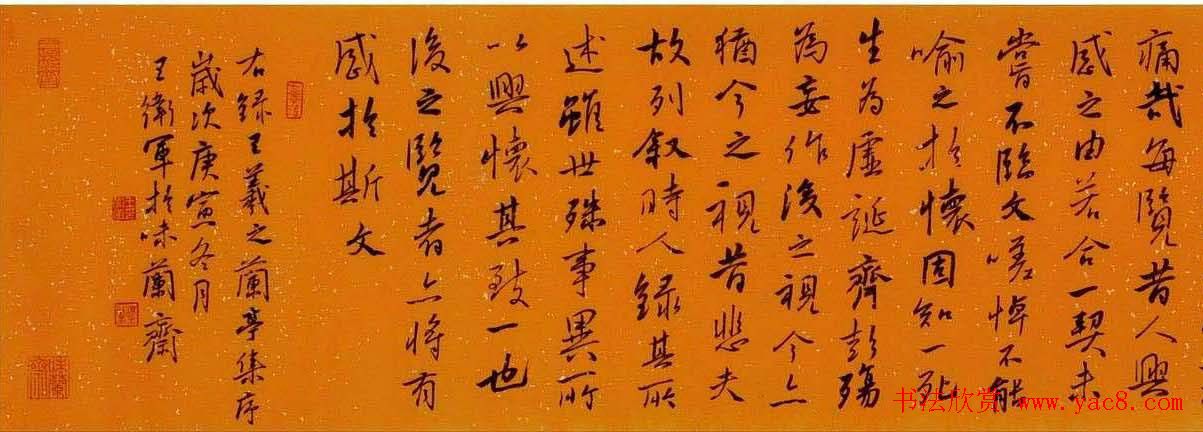 痛哉每覽昔人興
感之由若合一契未
嘗不臨文嗟悼不能
喻之於懷固知一死
生為虛誕齊彭殤
為妄作後之視今亦
猶今之視昔悲夫
故列叙時人錄其所
述雖世殊事異所
以興懷其致一也
後之覽者亦將有
感於斯文
右錄王羲之蘭亭集序
歲次庚寅冬月
王衛軍於味蘭齋
书法欣赏 www.yac8.com